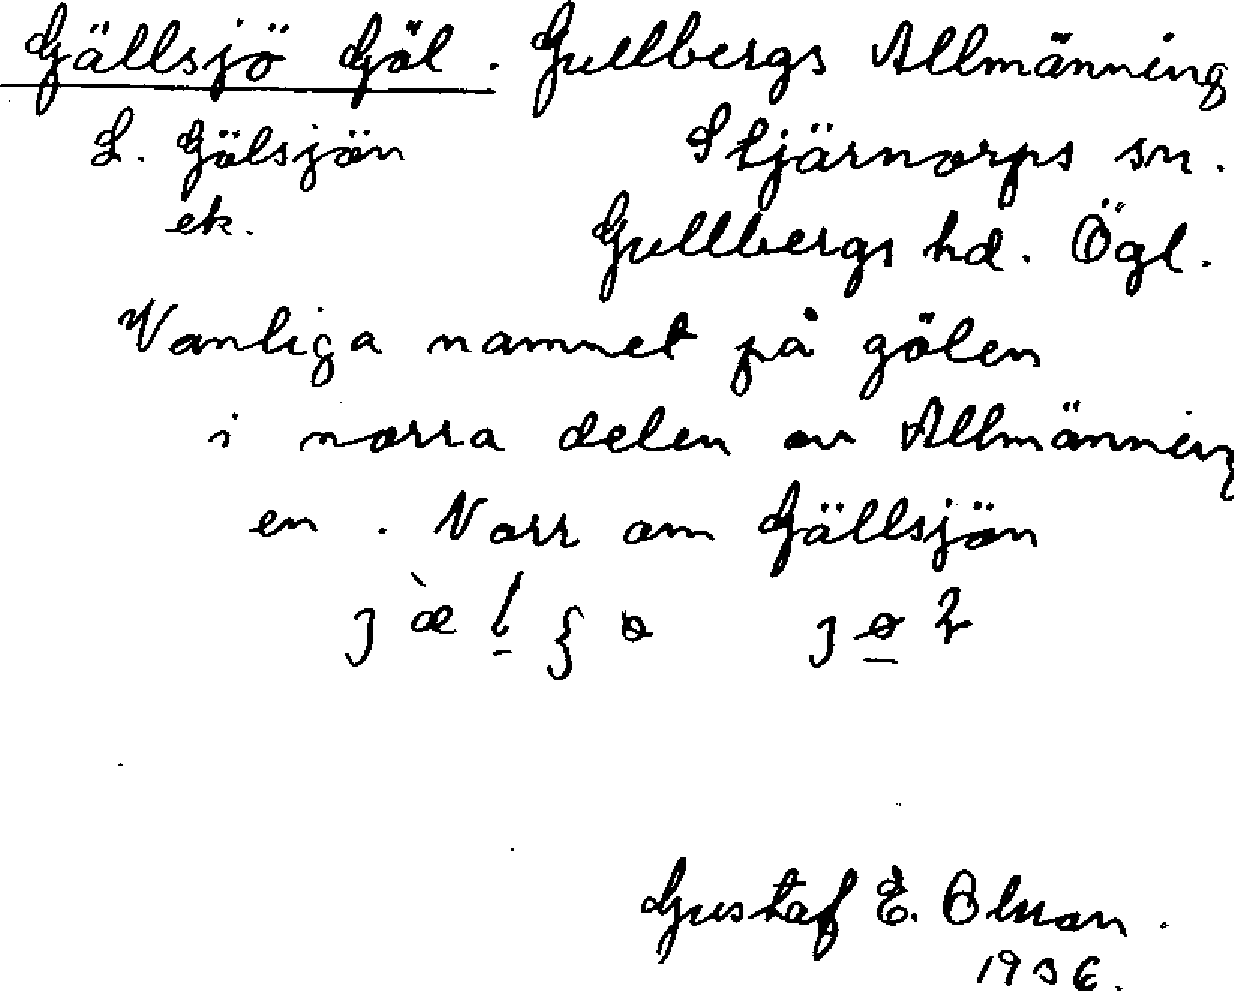 Gällsjö Göl. Gullbergs Allmänning
L. Gölsjön Stjärnorps sn.
ek. Gullbergs hd. Ögl.
Vanliga namnet på gölen
i norra delen av Allmänning
en. Norr om Gällsjön
Gustaf E. Olson.
1936.